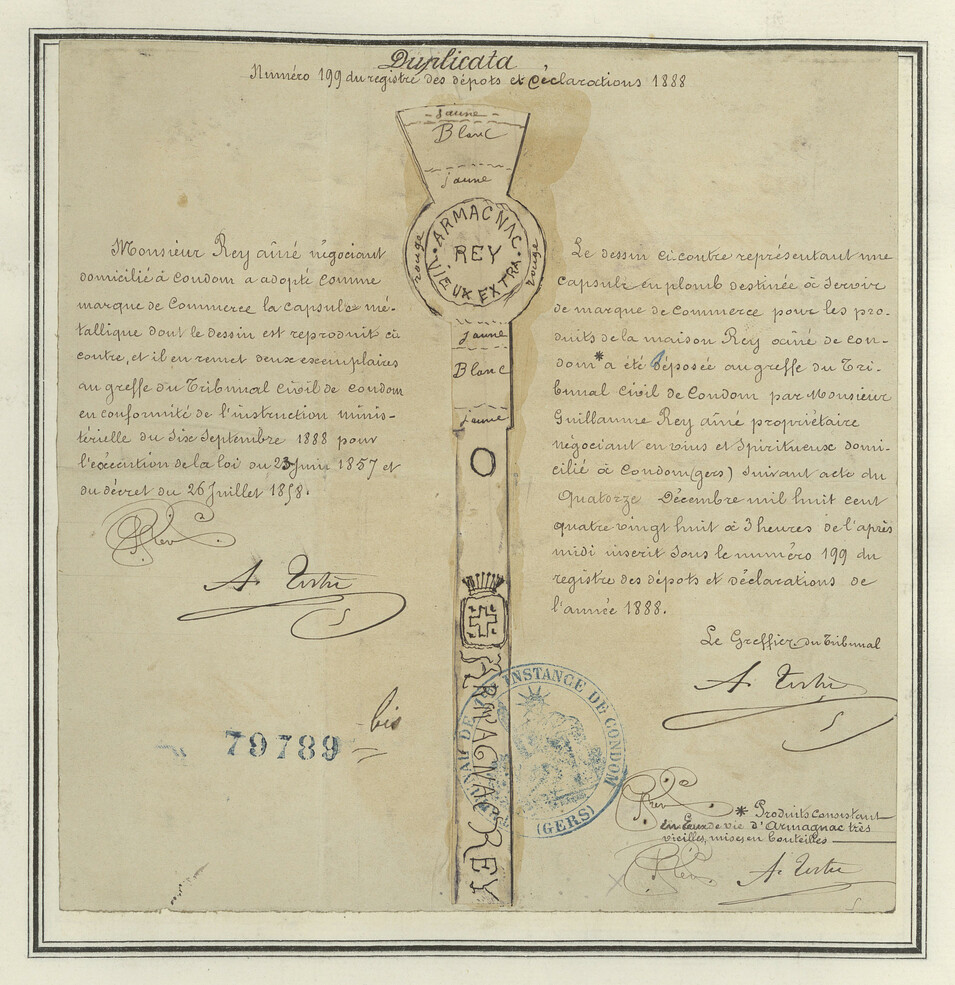 Duplicata
Numéro 199 du registre des dépots et déclarations 1888
jaune
Blanc
jaune
rouge
ARMAGNAC
REY
VIEUX EXTRA
rouge
jaune
Blanc
jaune
ARMAGNAC REY
Monsieur Rey aîné négociant
domicilié à Condom a adopté comme
marque de Commerce la capsule mé-
tallique dont le dessin est reproduit ci
contre, et il en remet deux exemplaires
au greffe du Tribunal Civil de Condom
en conformité de l'instruction minis-
térielle du Six Septembre 1888 pour
l'exécution de la loi du 23 Juin 1857 et
du décret du 26 Juillet 1858.
79789 bis
Le dessin ci contre représentant une
capsule en plomb destinée à servir
de marque de Commerce pour les pro-
duits de la maison Rey aîné de Con-
dom * a été déposée au greffe du Tri-
bunal Civil de Condom par Monsieur
Guillaume Rey aîné propriétaire
négociant en vins et Spiritueux domi-
cilié à Condom (gers) Suivant acte du
Quatorze Décembre mil huit cent
quatre vingt huit à 3 heures de l'après
midi inscrit sous le numéro 199 du
registre des dépots et déclarations de
l'année 1888.
Le Greffier du Tribunal
INSTANCE DE CONDOM
(GERS)
* Produits Consistant
en Eaux de vie d'Armagnac très
vieilles, mises en bouteilles